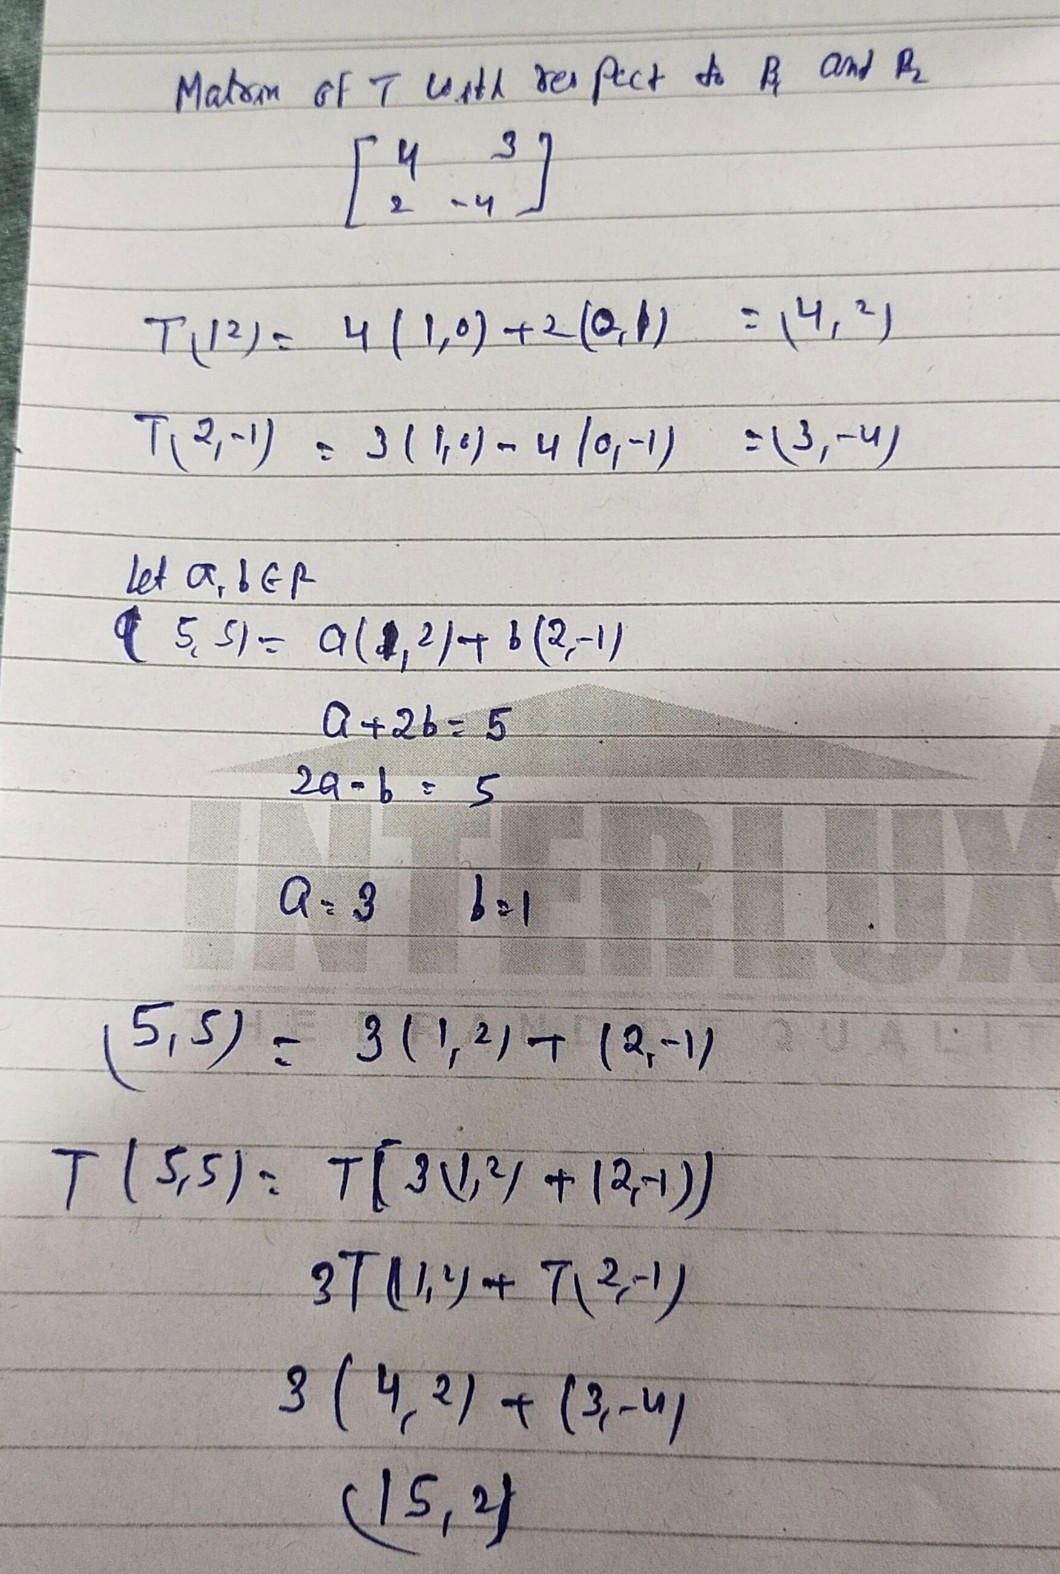 Matrix of T with respect to B1 and B2
[ 4 3
2 -4 ]
T(12) = 4(1,0)+2(0,1) = (4,2)
T(2,-1) = 3(1,0)-4(0,-1) = (3,-4)
Let a, b ∈ R
(5,5) = a(1,2)+b(2,-1)
a+2b = 5
2a-b = 5
a=3 b=1
INTERLUX
(5,5) = 3(1,2)+(2,-1)
THE BRAND OF QUALIT
T(5,5) = T[3(1,2)+(2,-1))
3T(1,2)+T(2,-1)
3(4,2)+(3,-4)
(15,2)